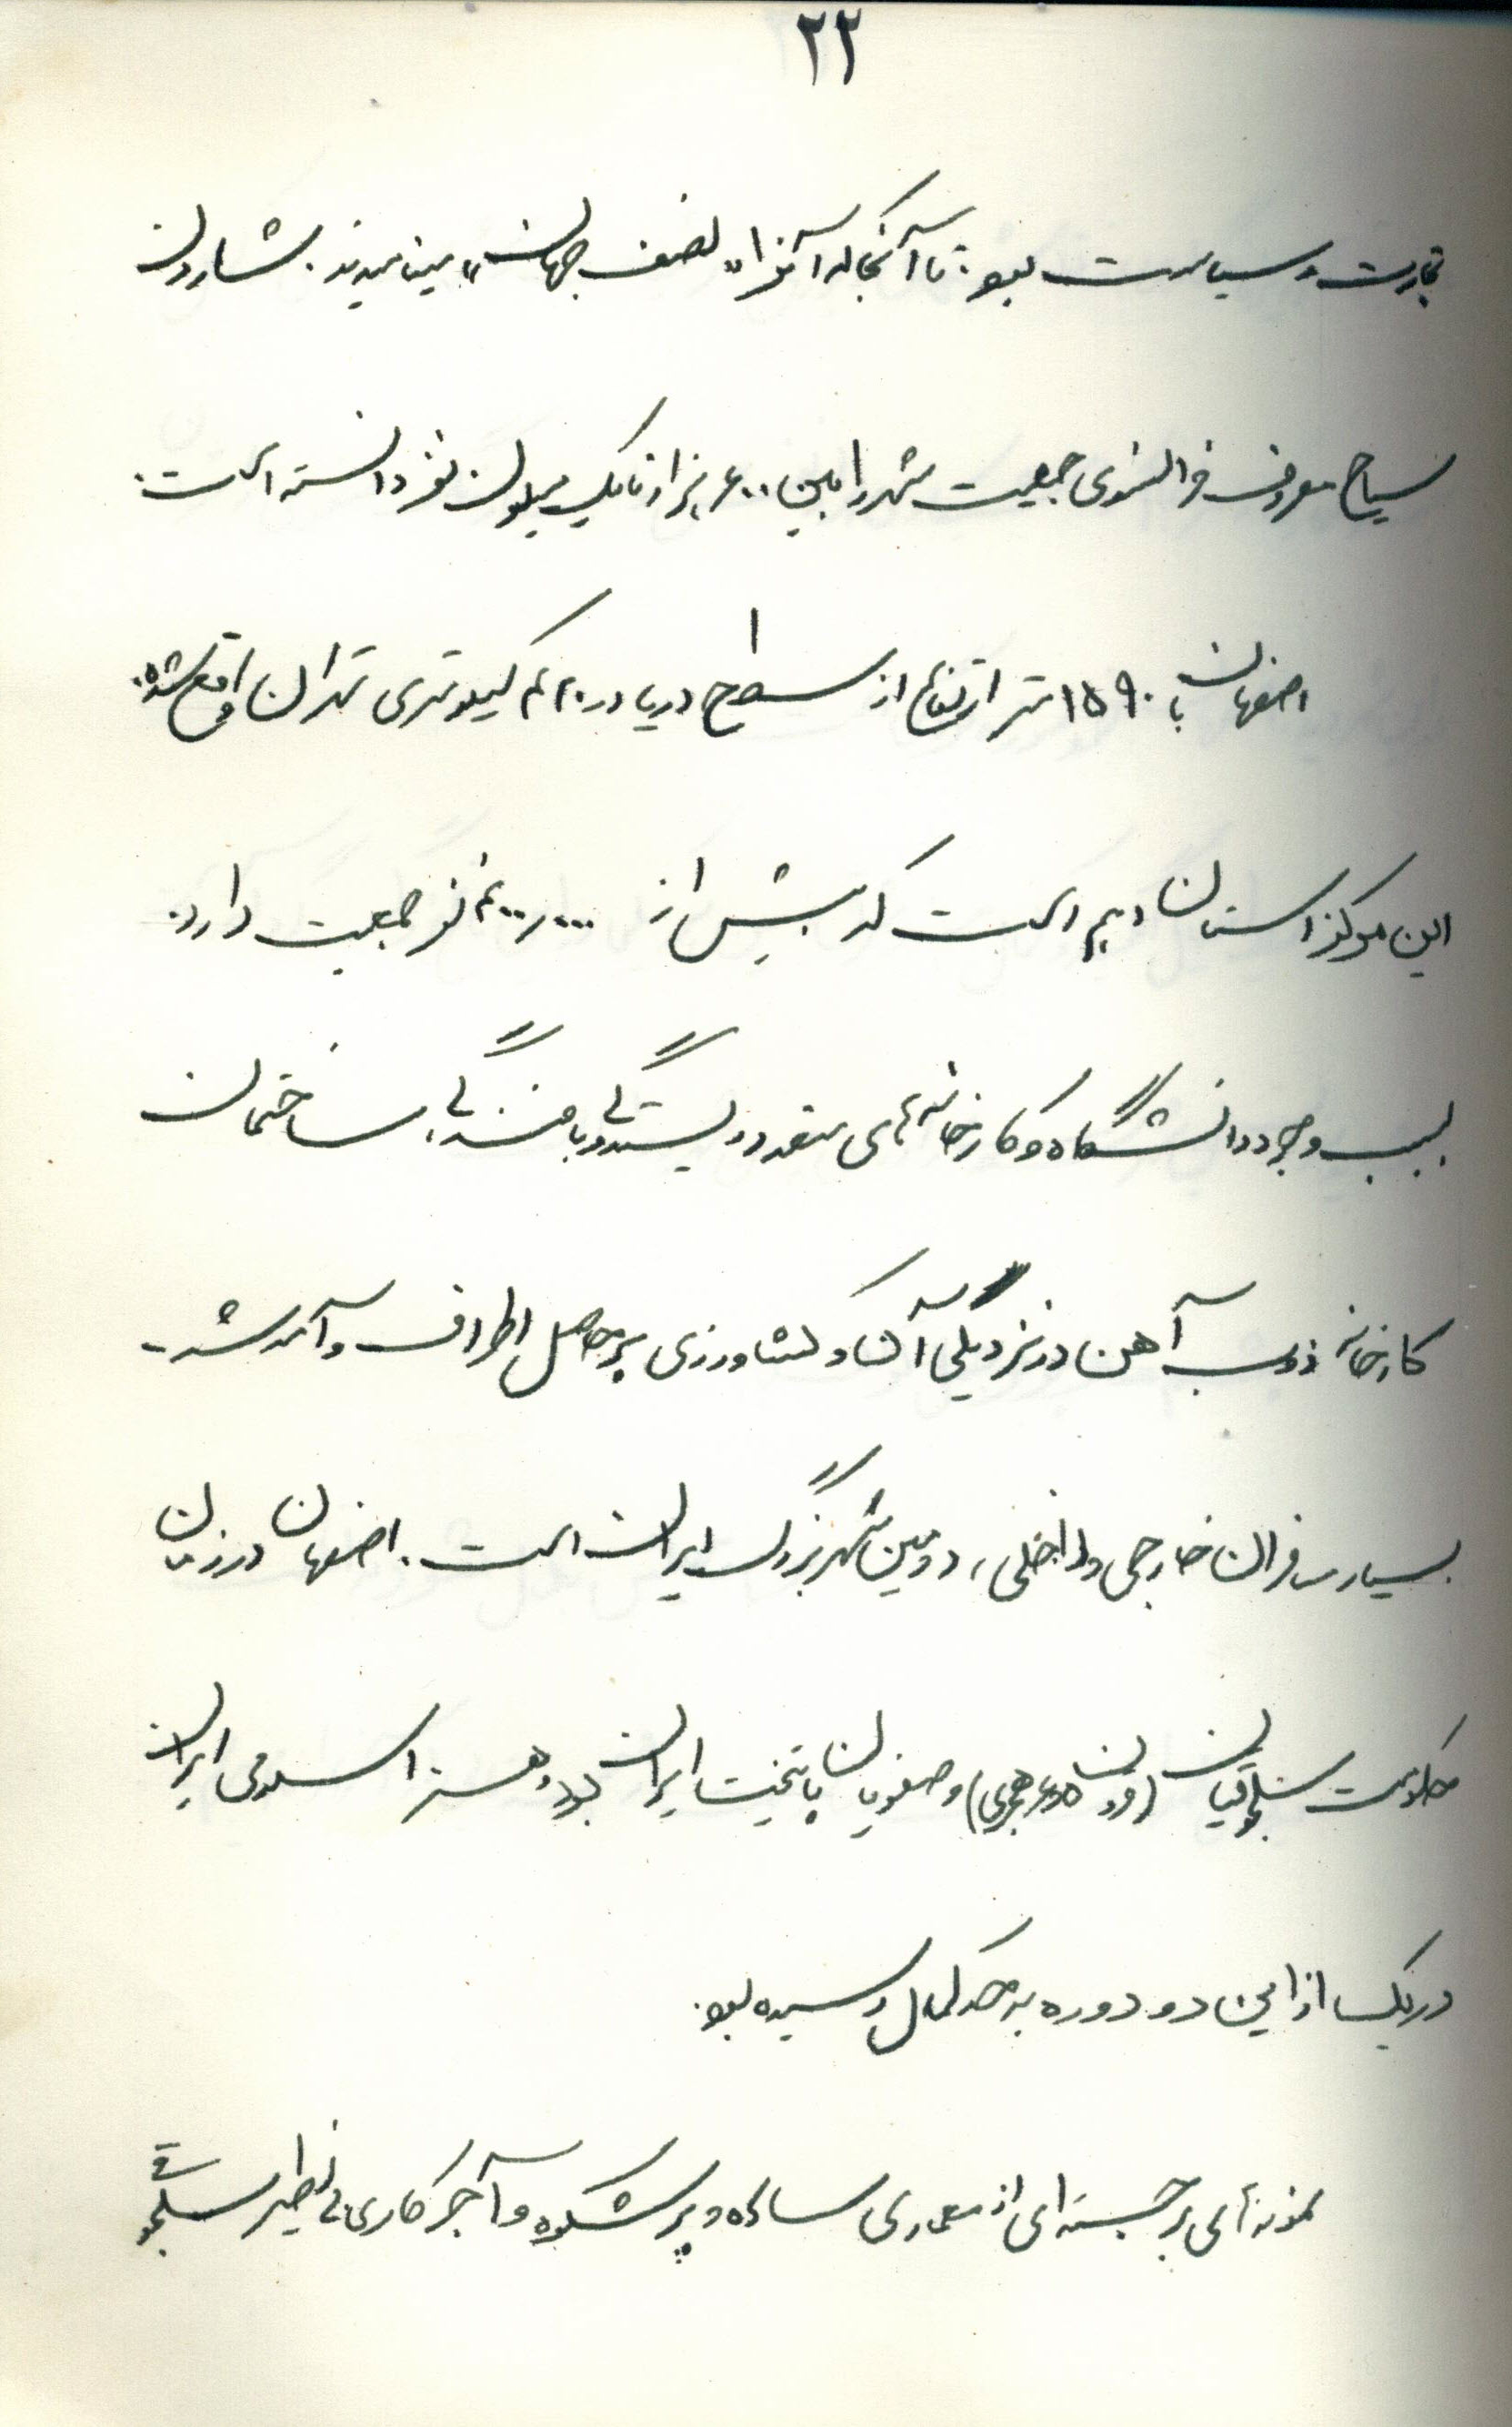 ۲۲
تجارت و سیاست بود تا آنجا که آنرا «نصف جهان» مینامیدند. شاردن
سیاح معروف فرانسوی جمعیت شهر را بین ۶۰۰ هزار تا یک میلیون نفر دانسته است.
اصفهان با ۱۵۹۰ متر ارتفاع از سطح دریا در ۴۲۰ کیلومتری تهران واقع شده.
این مرکز استان دهم است که بیش از ۴۰۰٫۰۰۰ نفر جمعیت دارد.
بسبب وجود دانشگاه و کارخانه‌های متعدد ریسندگی و بافندگی، ساختمان
کارخانه ذوب آهن در نزدیکی آن و کشاورزی پرحاصل اطراف و آمد شد
بسیار مسافران خارجی و داخلی، دومین شهر بزرگ ایران است. اصفهان در زمان
حکومت سلجوقیان (قرون ۵ و ۶ هجری) و صفویان پایتخت ایران بود و هنر اسلامی ایران
در یک از این دو دوره به حد کمال رسیده بود.
نمونه‌های برجسته‌ای از معماری ساده و پرشکوه و آجر کاری بی نظیر سلجوقی